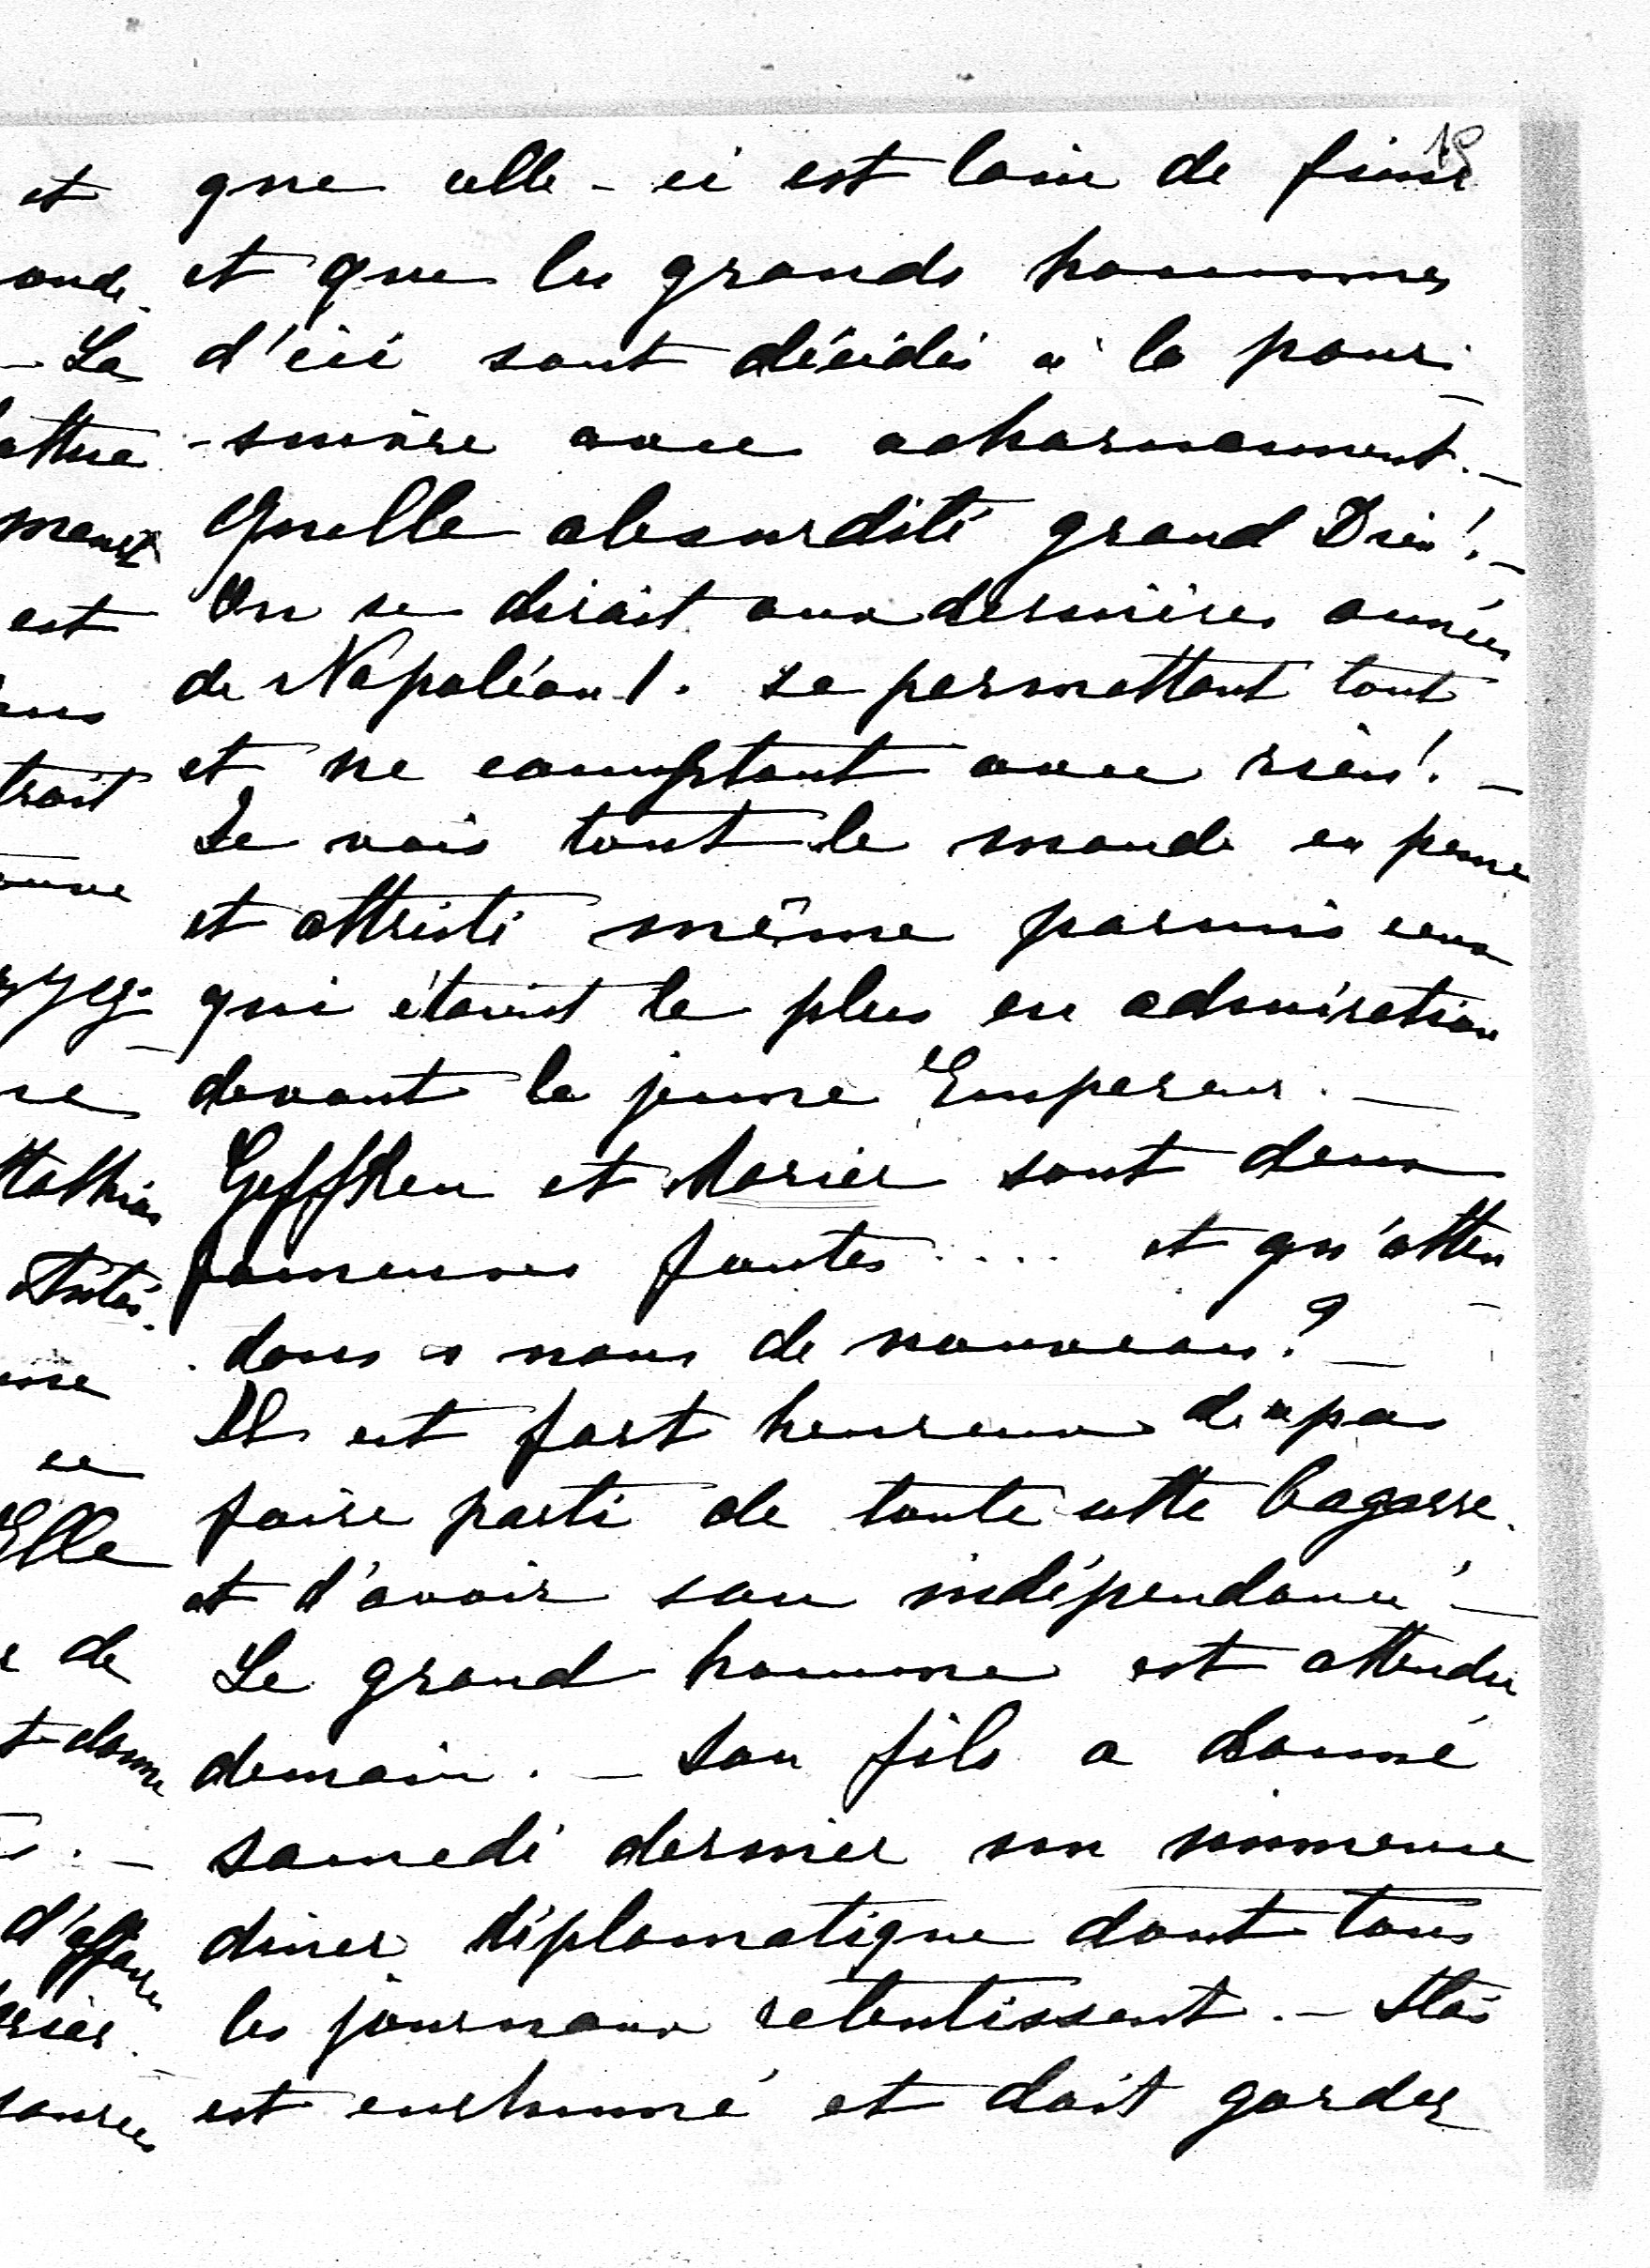 18
que celle-ci est loin de finir
et que les grands hommes
d'ici sont décidés à la pour-
-suivre avec acharnement. -
Quelle absurdité grand Dieu! -
On se dirait aux dernières années
de Napoléon I. se permettant tout
et ne comptant avec rien! -
Je vois tout le monde en peine
et attristé même parmis ceux
qui étaient le plus en admiration
devant le jeune Empereur. -
Geffken et Morier sont deux
fameuses fautes .... et qu'atten-
-dons-nous de nouveau? -
Il est fort heureux de pas
faire parti de toute cette bagarre
et d'avoir son indépendance -
Le grand homme est attendu
demain. - Son fils a donné
samedi dernier son immense
diner diplomatique dont tous
les journaux retentissent. -
est enrhumé et doit garder
et
- La
est
trait
Mathias
ce
Elle
de
donne
d'affaires